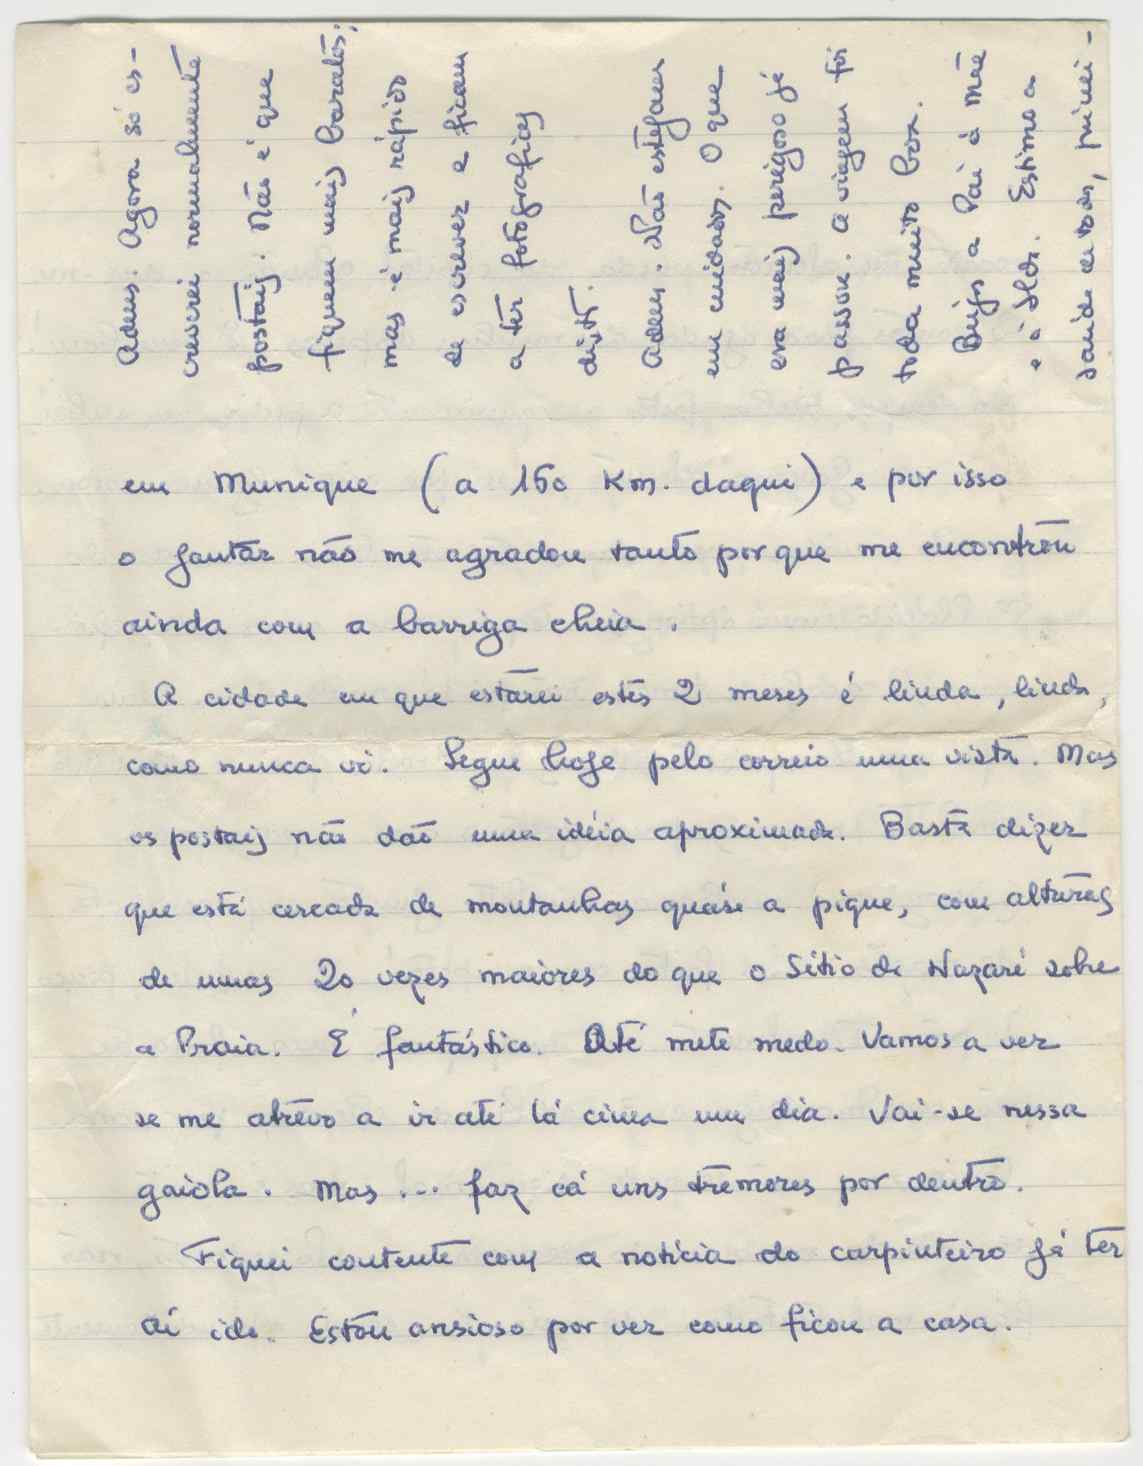 em Munique (a 150 Km. daqui) e por isso
o jantar não me agradou tanto porque me encontrou
ainda com a barriga cheia.
A cidade em que estarei estes 2 meses é linda, linda,
como nunca vi. Segue hoje pelo correio uma vista. Mas
os postais não dão uma idéia aproximada. Basta dizer
que está cercada de montanhas quáse a pique, com alturas
de umas 20 vezes maiores do que o Sítio da Nazaré sobre
a Praia. É fantástico. Até mete medo. Vamos a ver
se me atrevo a ir até lá cima um dia. Vai-se nessa
gaiola. Mas ... faz cá uns tremores por dentro.
Fiquei contente com a notícia do carpinteiro já ter
aí ido. Estou ansioso por ver como ficou a casa.
Adeus. Agora só es-
creverei normalmente
postais. Não é que
fiquem mais baratos;
mas é mais rápido
de escrever e ficam
a ter fotografias
disto.
Adeus. Não estejam
em cuidados. O que
era mais perigoso já
passou. A viagem foi
toda muito boa.
Beijos a Pai à Mãe
e à Ilda. Estimo a
saúde de todos, princi-